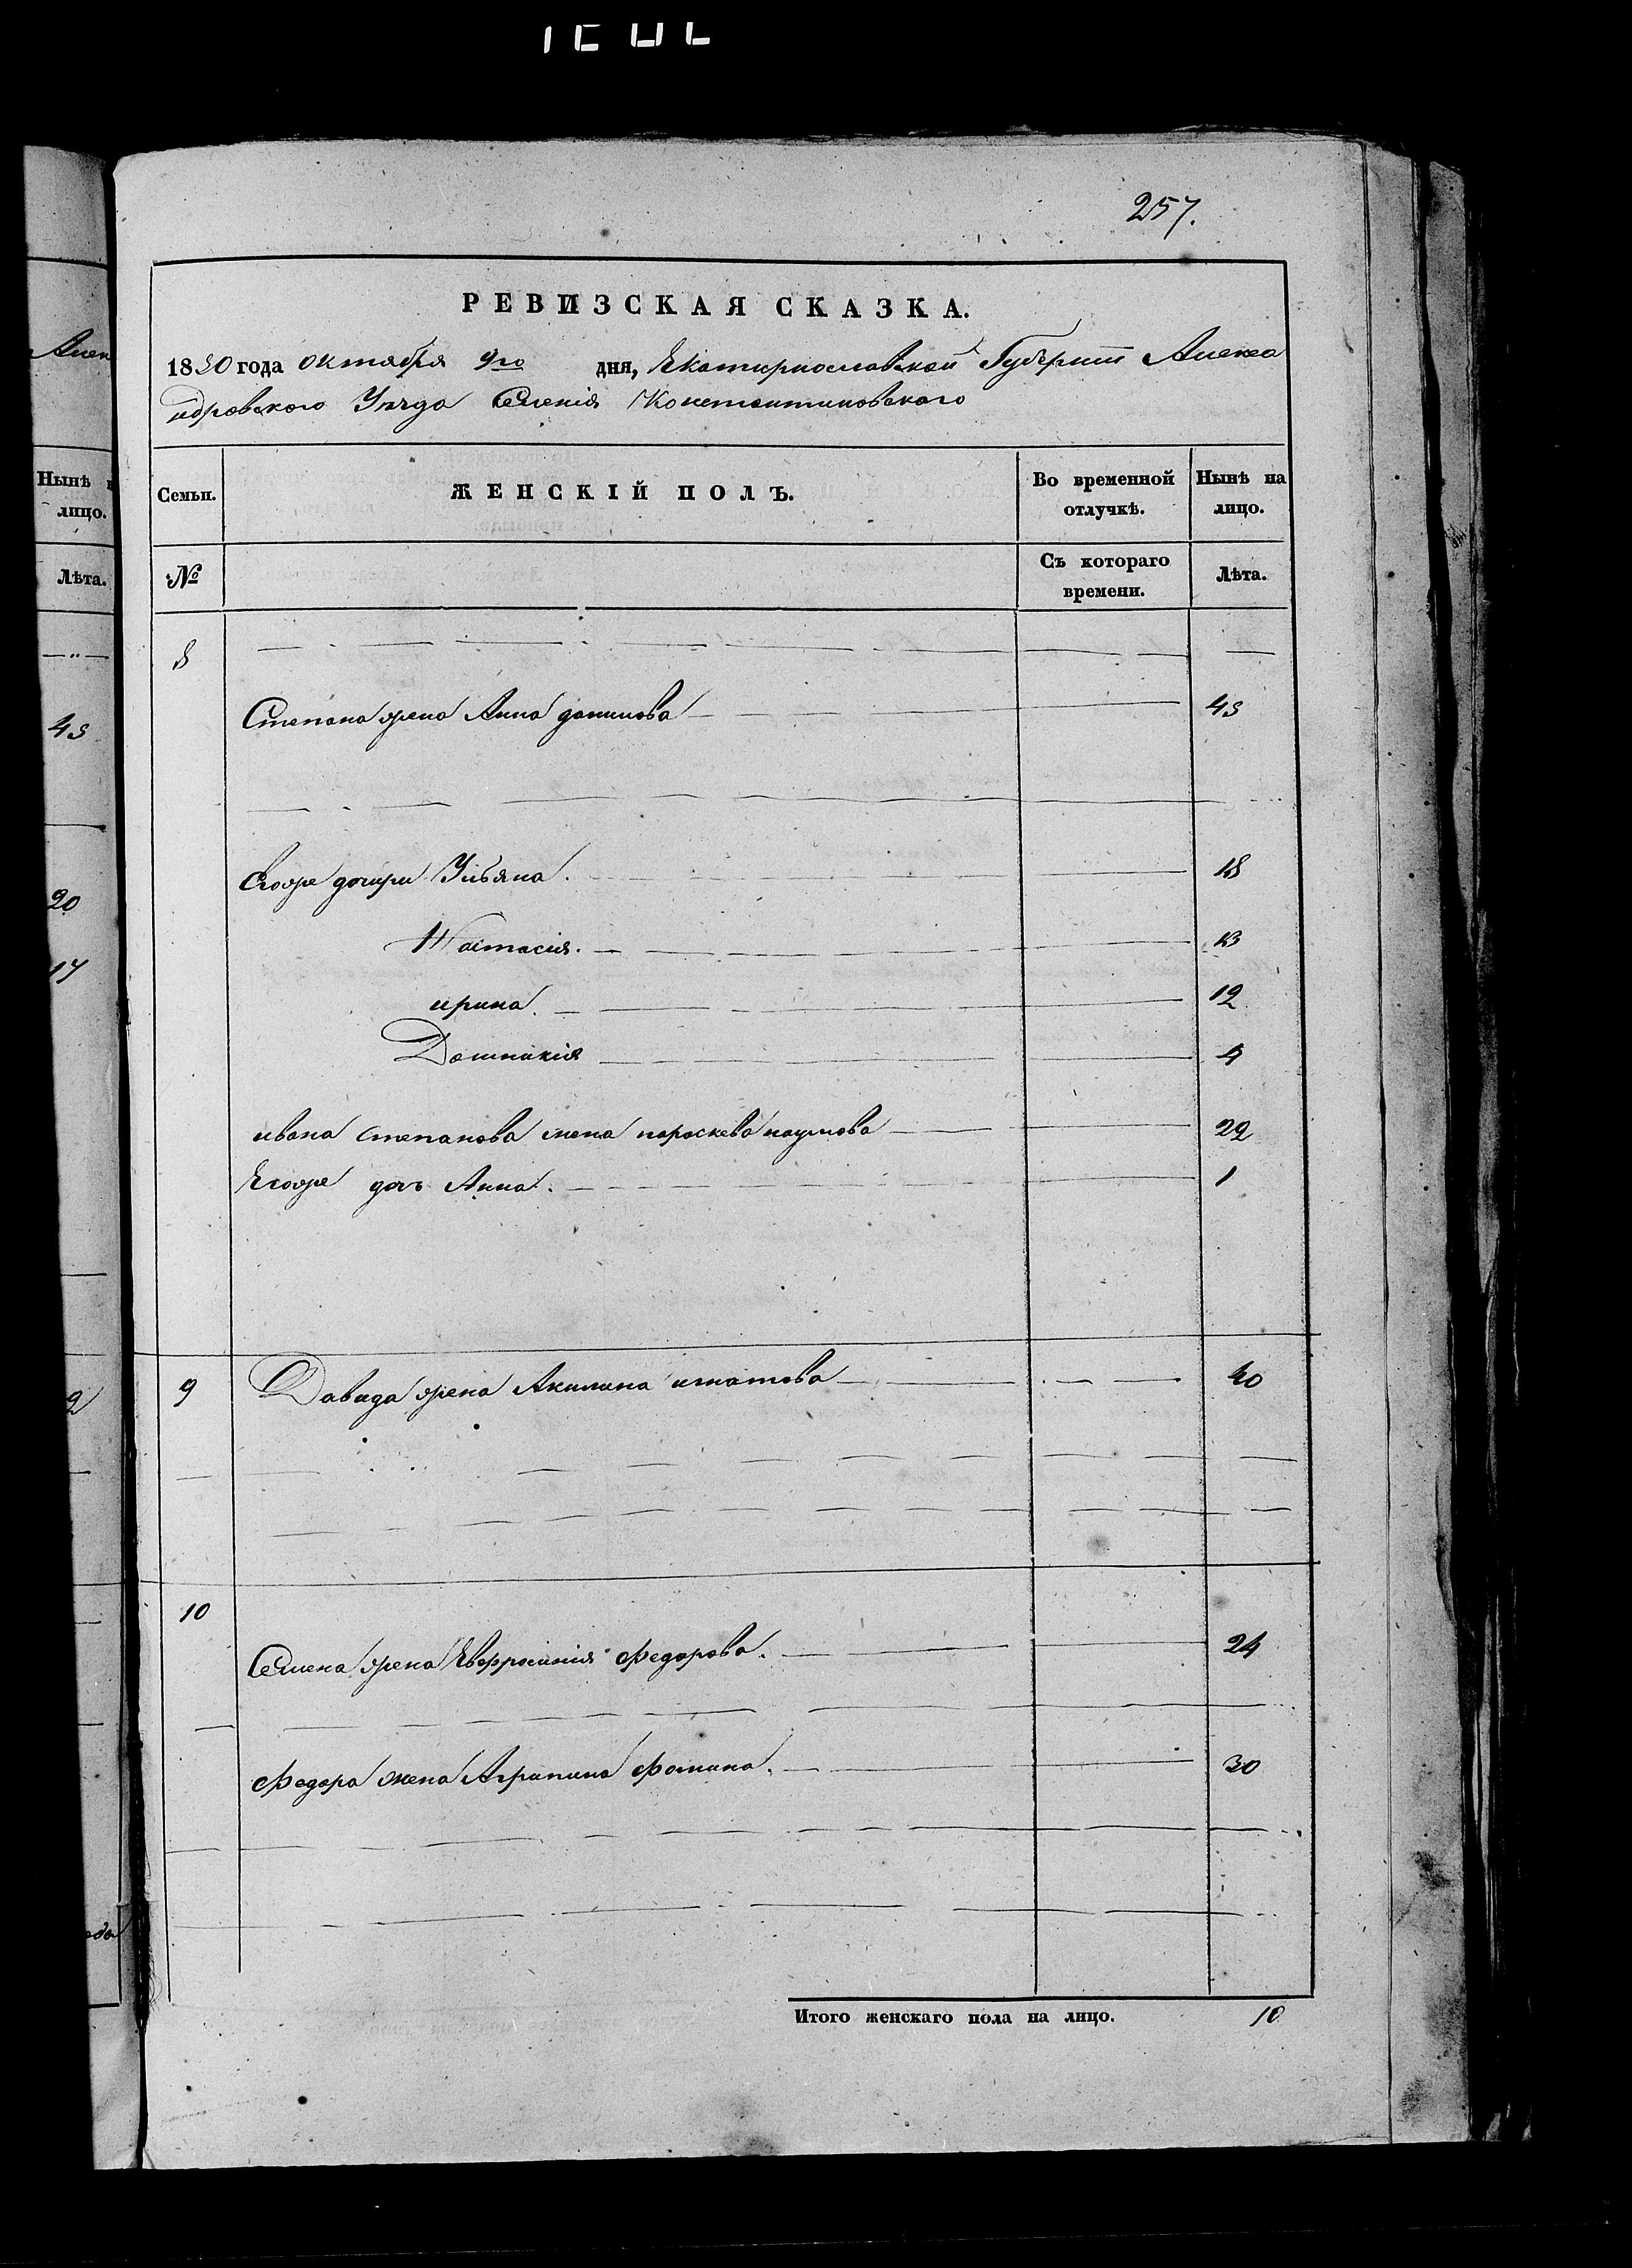 257.
РЕВИЗСКАЯ СКАЗКА.
1850 года октября 9го дня, Екатиринославской Губернии Алекса
ндровского Уезда Селения Константиновского
Семьи.
ЖЕНСКІЙ ПОЛЪ.
Во временной отлучкѣ.
Нынѣ на лицо.
№
Съ котораго времени.
Лѣта.
8
Степана жена Анна данилова 45
Евоже дочери Ульяна. 18
Настасія. 13
ирина. 12
Домникія 4
ивана степанова жена параскева наумова 22
Евоже дочь Анна. 1
9 Давида жена Акилина игнатова 40
10
Семена жена Евфросинія Федорова. 24
Федора жена Агрипина Фомина. 30
Итого женскаго пола на лицо. 10
Алек
Нынѣ
лицо.
Лѣта.
45
20
17
2